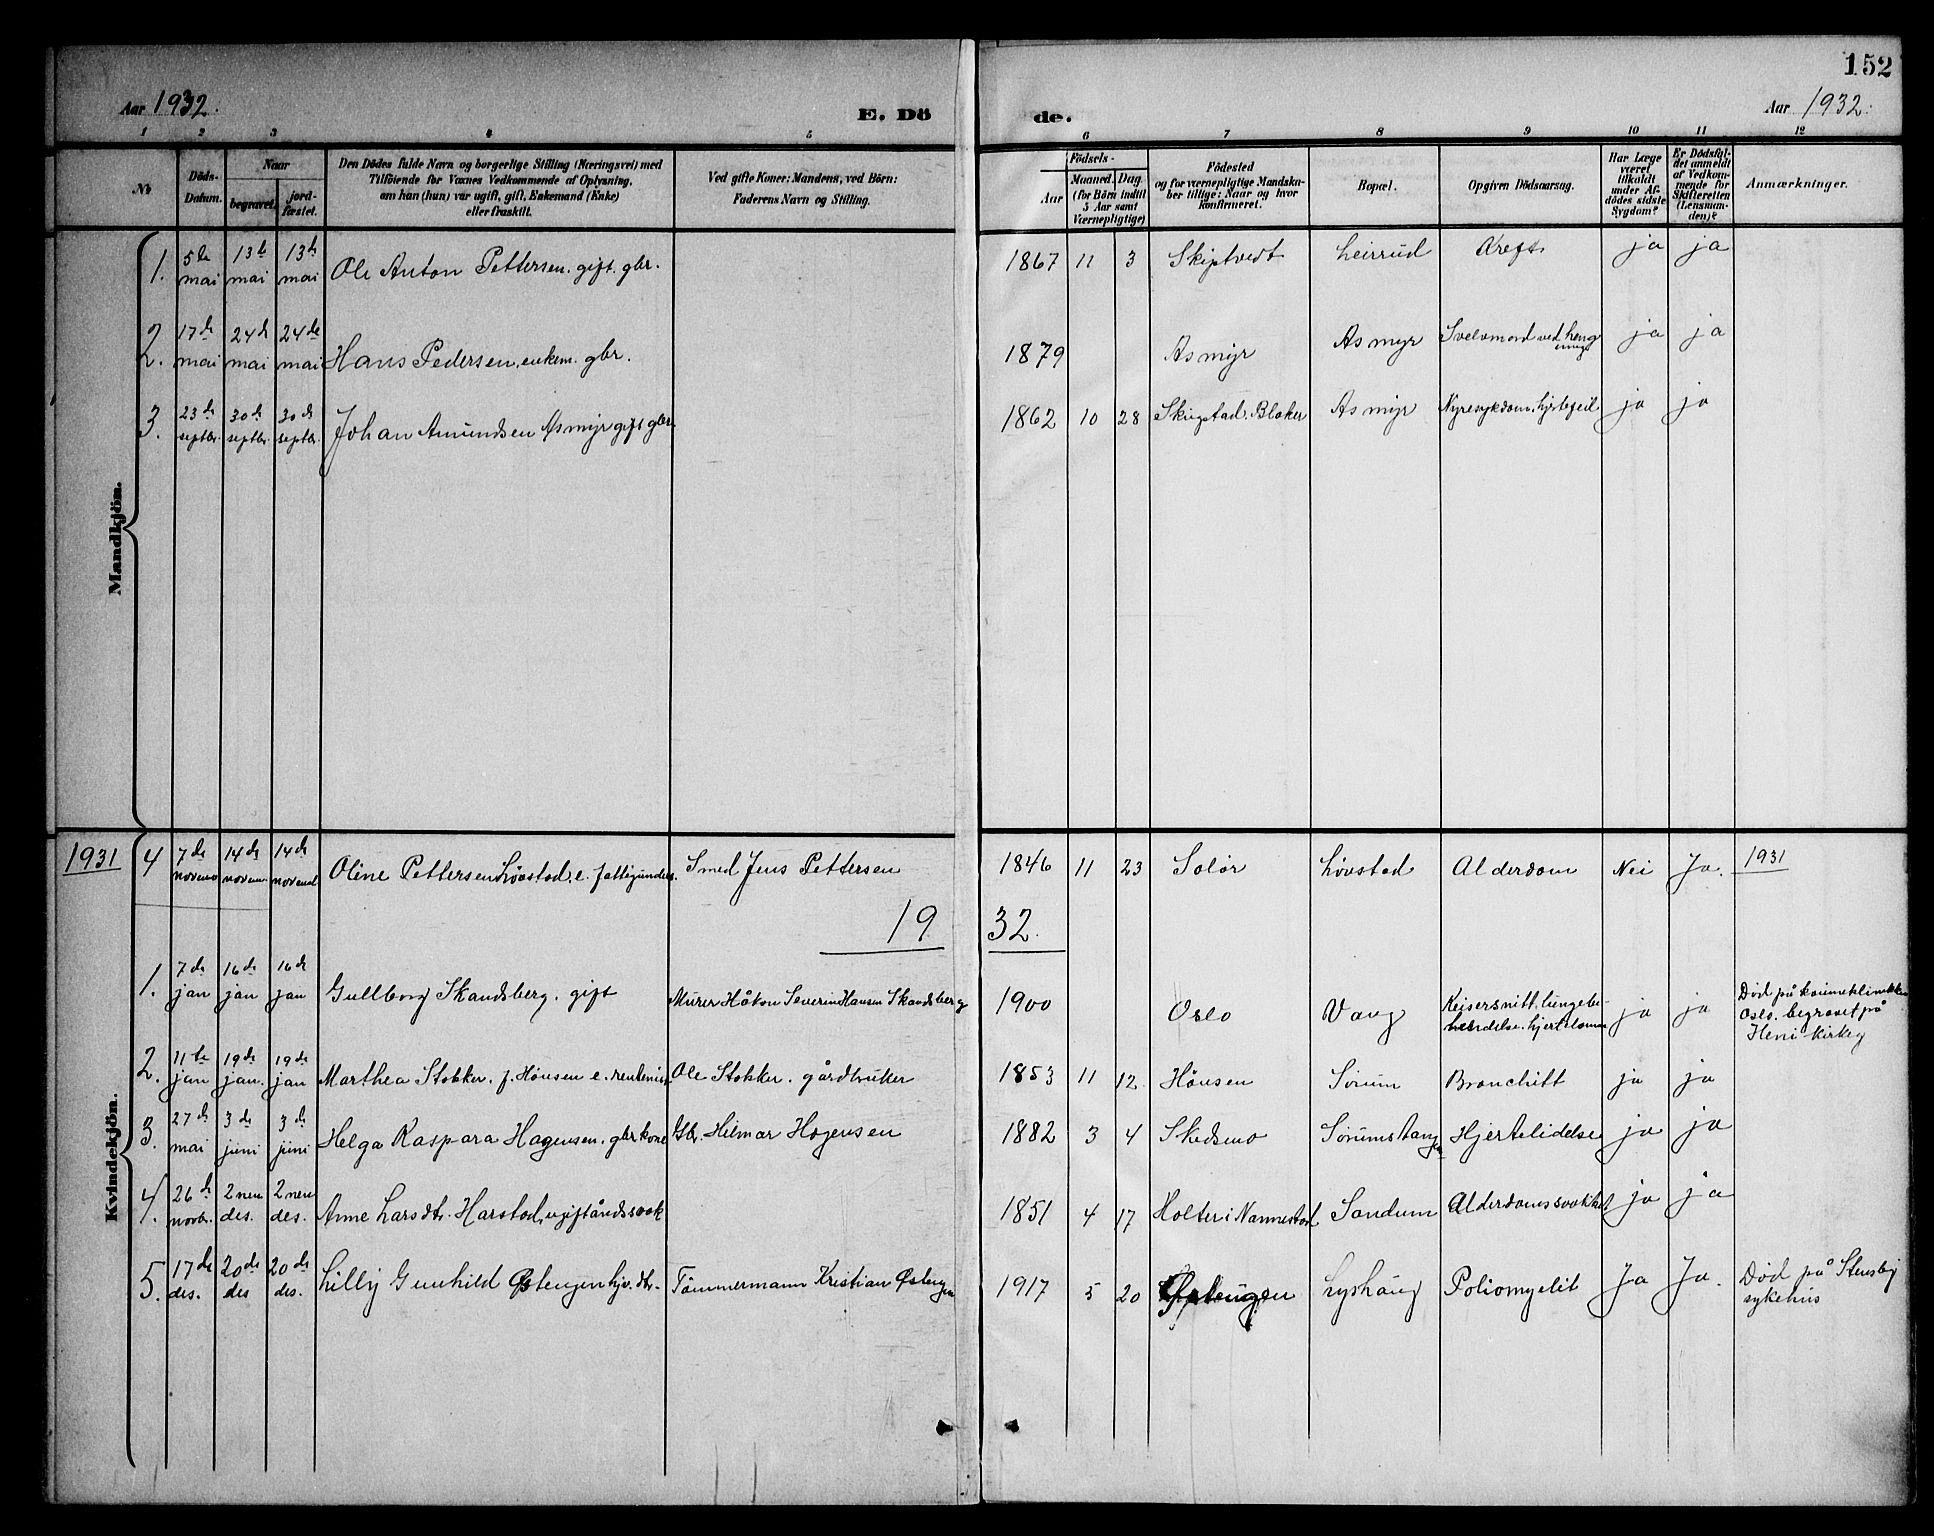 152
Aar 1932.
E. Dö
de.
Aar 1932.
1 2 3 4 5 6 7 8 9 10 11 12
No
Döds-
Datum.
Naar
begravet.
jord-
fæstet.
Den Dödes fulde Navn og borgerlige Stilling (Næringsvei) med
Tilföiende for Voxnes Vedkommende af Oplysning,
om han (hun) var ugift, gift, Enkemand (Enke)
eller fraskilt.
Ved gifte Koner: Mandens, ved Börn:
Faderens Navn og Stilling.
Födsels-
Aar
Maaned. Dag.
(for Börn indtil
5 Aar samt
Værnepligtige)
Födested
og for værnepligtige Mandska-
ber tillige: Naar og hvor
konfirmeret.
Bopæl.
Opgiven Dödsaarsag.
Har Læge
været
tilkaldt
under Af-
dödes sidste
Sygdom?
Er Dödsfal-
det anmeldt
af Vedkom-
mende for
Skifteretten
(Lensman-
den)?
Anmærkninger.
Mandkjön.
1. 5te mai 13de mai 13de mai Ole Anton Pettersen. gift. gbr. 1867 11 3 Skiptvedt Leirrud Kreft ja ja
2. 17de mai 24de mai 24de mai Hans Pedersen, enkem. gbr. 1879 Asmyr Asmyr Selvmord ved heng ning ja ja
3. 23de septbr. 30de septbr. 30de septbr. Johan Amundsen Asmyr gift gbr. 1862 10 28 Skugstad, Blaker Asmyr Nyresykdom, hjertefeil ja ja
Kvindekjön.
1931 4 7de novemb 14de novem 14de novemb Oline Pettersen Løvstad. e. fattigunders. Smed Jens Pettersen 1846 11 23 Solør Løvstad Alderdom Nei Ja. 1931
19 32.
1. 7de jan 16de jan 16de jan Gullborg Skandsberg. gift Murer Håkon Severin Hansen Skandsberg 1900 Oslo Vang Keisersnitt, lungebe- tendelse, hjertelamm ja ja Død på kvinneklinikken Oslo. begravet på Heni kirkeg
2. 11te jan 19de jan. 19de jan Marthea Stokker. f. Hønsen e. rentenist Ole Stokker. gårdbruker 1853 11 12 Hønsen Sørum Bronchitt ja ja
3. 27de mai 3de juni 3de juni Helga Kaspara Hagensen. gbr kone Gbr. Hilmar Hagensen 1882 3 4 Skedsmo Sørumstangen Hjertelidelse ja ja
4. 26de novbr. 2nen des. 2nen des. Anne Larsdtr. Harstad, ugift åndssvak 1851 4 17 Holter i Nannestad Sandum Alderdomssvakhet ja ja
5. 17de des. 20de des 20de des. Lilly Gunhild Østengen hjv. dtr. Tømmermann Kristian Østengen 1917 5 20 Østengen Lyshaug Poliomyelit Ja Ja. Død på Stensby sykehus